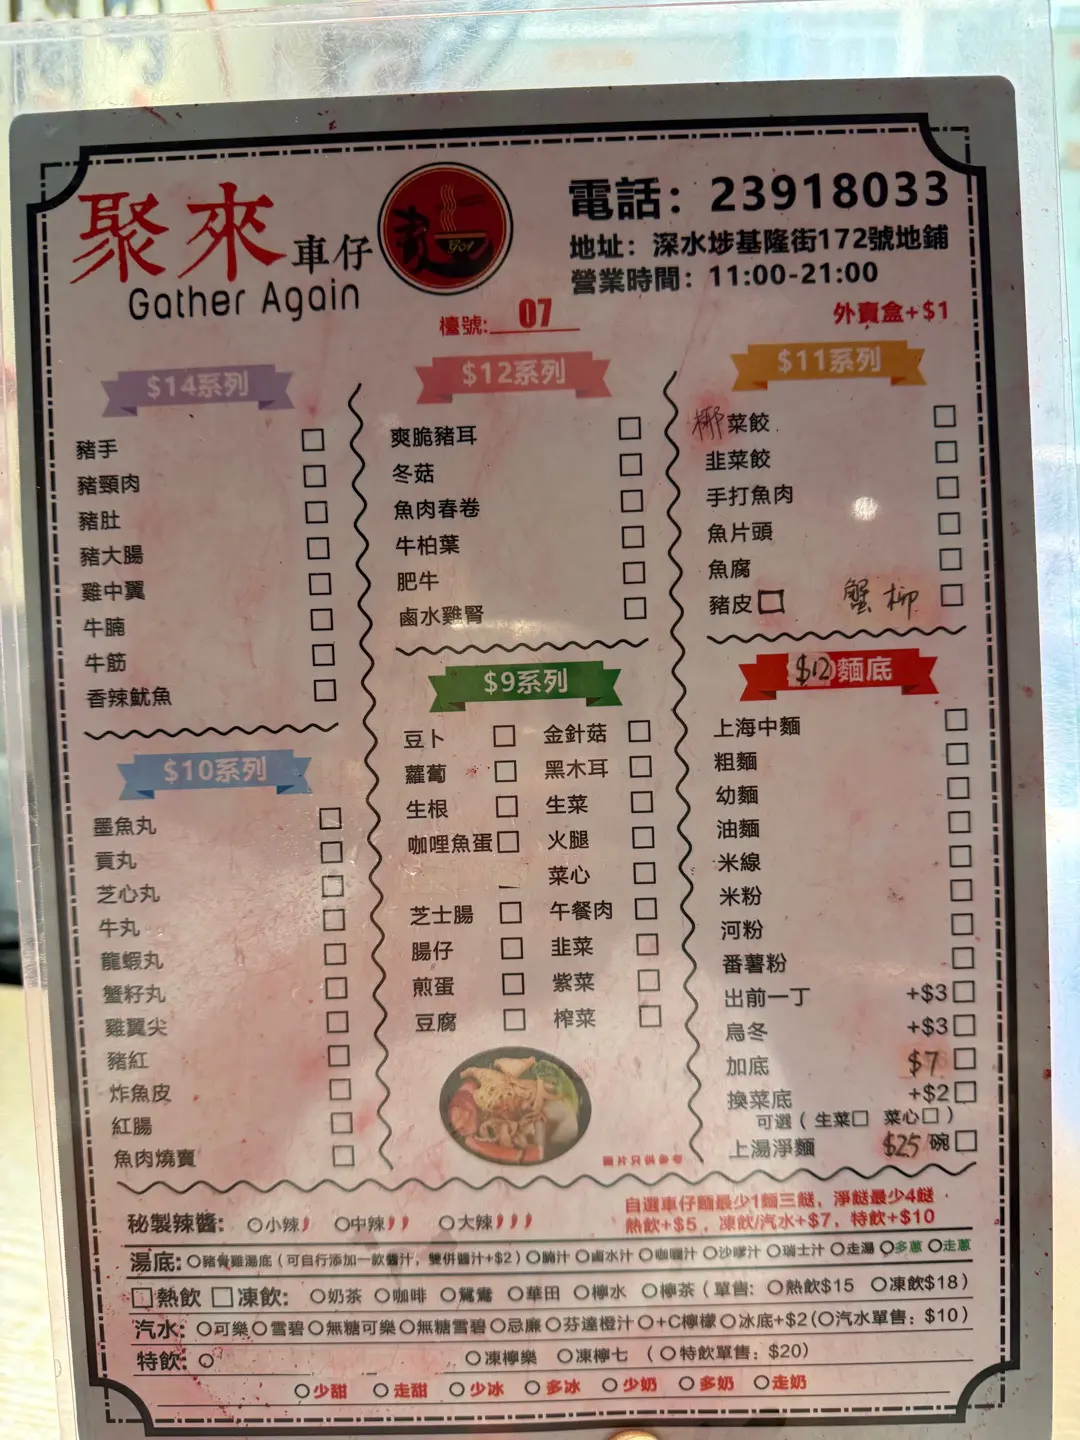 聚來車仔麵
Gather Again
電話：23918033
地址：深水埗基隆街172號地鋪
營業時間：11:00-21:00
檯號: 07
外賣盒+$1
$14系列
豬手
豬頸肉
豬肚
豬大腸
雞中翼
牛腩
牛筋
香辣魷魚
$10系列
墨魚丸
貢丸
芝心丸
牛丸
龍蝦丸
蟹籽丸
雞翼尖
豬紅
炸魚皮
紅腸
魚肉燒賣
$12系列
爽脆豬耳
冬菇
魚肉春卷
牛柏葉
肥牛
鹵水雞腎
$9系列
豆卜 金針菇
蘿蔔 黑木耳
生根 生菜
咖哩魚蛋 火腿
菜心
芝士腸 午餐肉
腸仔 韭菜
煎蛋 紫菜
豆腐 榨菜
圖片只供參考
$11系列
椰菜餃
韭菜餃
手打魚肉
魚片頭
魚腐
豬皮 蟹柳
$12麵底
上海中麵
粗麵
幼麵
油麵
米線
米粉
河粉
番薯粉
出前一丁 +$3
烏冬 +$3
加底 $7
換菜底 +$2
可選（生菜 菜心）
上湯淨麵 $25碗
自選車仔麵最少1麵三餸，淨餸最少4餸
熱飲+$5，凍飲/汽水+$7，特飲+$10
秘製辣醬： 小辣 中辣 大辣
湯底: 豬骨雞湯底（可自行添加一款醬汁，雙併醬汁+$2） 腩汁 鹵水汁 咖喱汁 沙嗲汁 瑞士汁 走湯 多蔥 走蔥
熱飲 凍飲: 奶茶 咖啡 鴛鴦 華田 檸水 檸茶（單售: 熱飲$15 凍飲$18）
汽水: 可樂 雪碧 無糖可樂 無糖雪碧 忌廉 芬達橙汁 +C檸檬 冰底+$2(汽水單售：$10)
特飲: 凍檸樂 凍檸七 （特飲單售：$20）
少甜 走甜 少冰 多冰 少奶 多奶 走奶